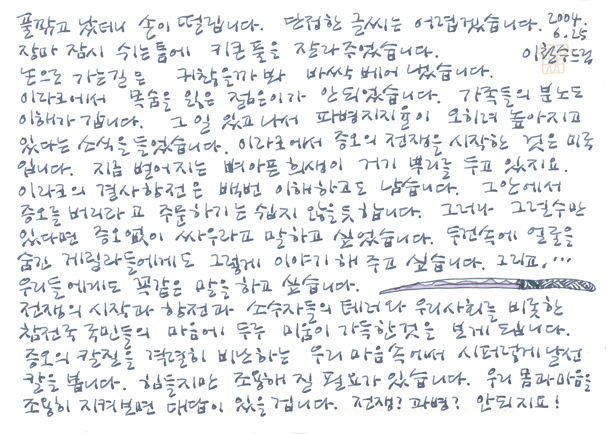 풀깎고 났더니 손이 떨립니다. 단정한 글씨는 어렵겠습니다. 2004.
6.25
장마 잠시 쉬는 틈에 키큰 풀을 잘라주었습니다. 이철수드림
논으로 가는길은 귀찮을까봐 바싹 베어 냈습니다.
이라크에서 목숨을 잃은 젊은이가 안되었습니다. 가족들의 분노도
이해가 갑니다. 그 일 있고 나서 파병지지율이 오히려 높아지고
있다는 소식을 들었습니다. 이라크에서 증오의 전쟁을 시작한 것은 미국
입니다. 지금 벌어지는 뼈아픈 희생이 거기 뿌리를 두고 있지요.
이라크의 결사항전은 백번 이해하고도 남습니다. 그안에서
증오를 버리라고 주문하기는 쉽지 않을듯 합니다. 그러나 그럴수만
있다면 증오없이 싸우라고 말하고 싶었습니다. 두건속에 얼굴을
숨긴 게릴라들에게도 그렇게 이야기 해 주고 싶습니다. 그리고,…
우리들에게도 똑같은 말을 하고 싶습니다.
전쟁의 시작과 항전과 소수자들의 테러와 우리사회를 비롯한
참전국 국민들의 마음에 두루 미움이 가득한 것을 보게 됩니다.
증오의 칼질을 격렬히 비난하는 우리 마음속에서 시퍼렇게 날선
칼을 봅니다. 힘들지만 조용해 질 필요가 있습니다. 우리 몸과 마음을
조용히 지켜보면 대답이 있을 겁니다. 전쟁? 파병? 안되지요!